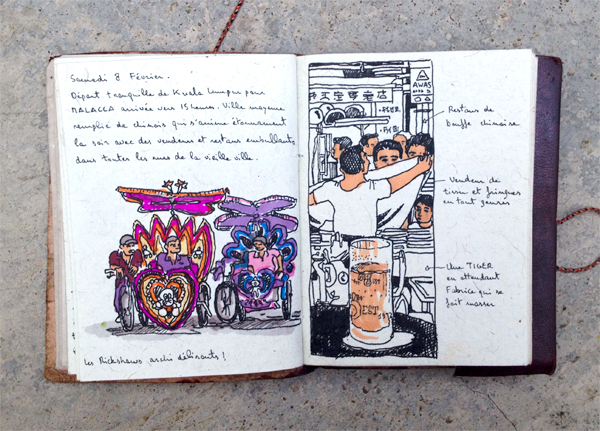 Samedi 8 Février.
Départ tranquille de Kuala Lumpur pour
MALACCA arrivée vers 15 heures. Ville moyenne
remplie de chinois qui s'anime étonnamment
le soir avec des vendeurs et restaus ambullants
dans toutes les rues de la vieille ville.
Les Rickshaws archi délirants !
AWAS
Restaus de
bouffe chinoise
Vendeur de
tissu et fringues
en tout genres
Une TIGER
en attendant
Fabrice qui se
fait masser
EST
193